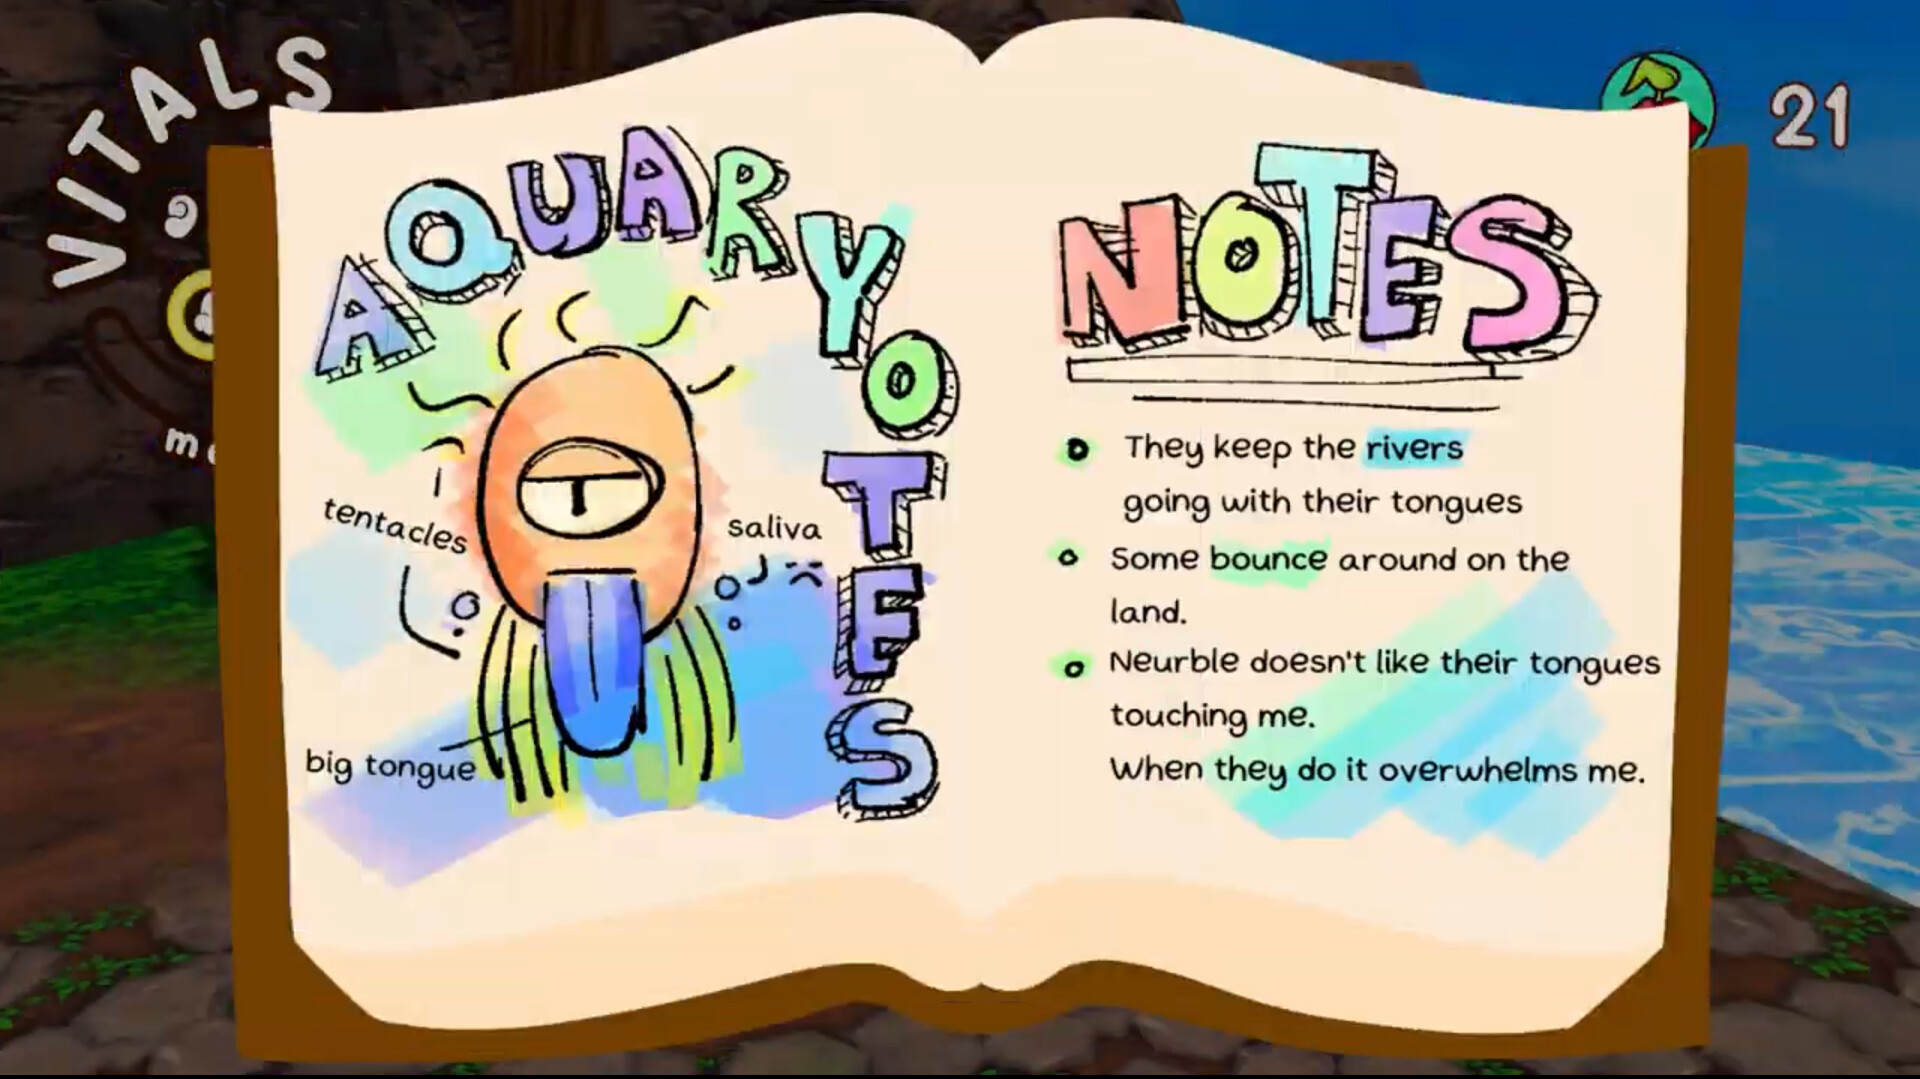 VITALS
21
AQUARYOTES
tentacles
saliva
big tongue
NOTES
They keep the rivers
going with their tongues
Some bounce around on the
land.
Neurble doesn't like their tongues
touching me.
When they do it overwhelms me.